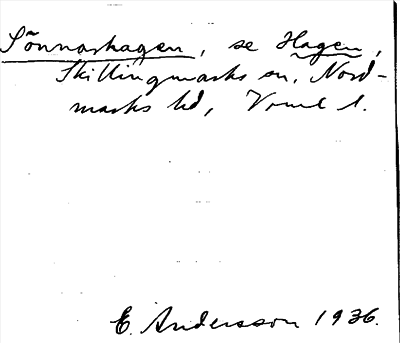 Sönnashagen, se Hagen,
Skillingmarks sn, Nord-
marks hd, Vrml l.
E. Andersson 1936.